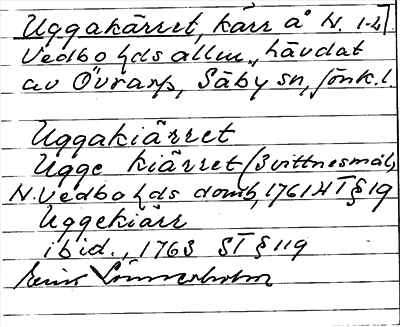 Uggakärret, kärr å N.
Vedbo hds allm., hävdat
av Övrarp, Säby sn, Jönk. l.
Uggakiärret
Ugge kiärret (3 vittnesmål,
N. Vedbo hds domb, 1761 HT § 19
Uggekiärr
ibid., 1763 ST § 119